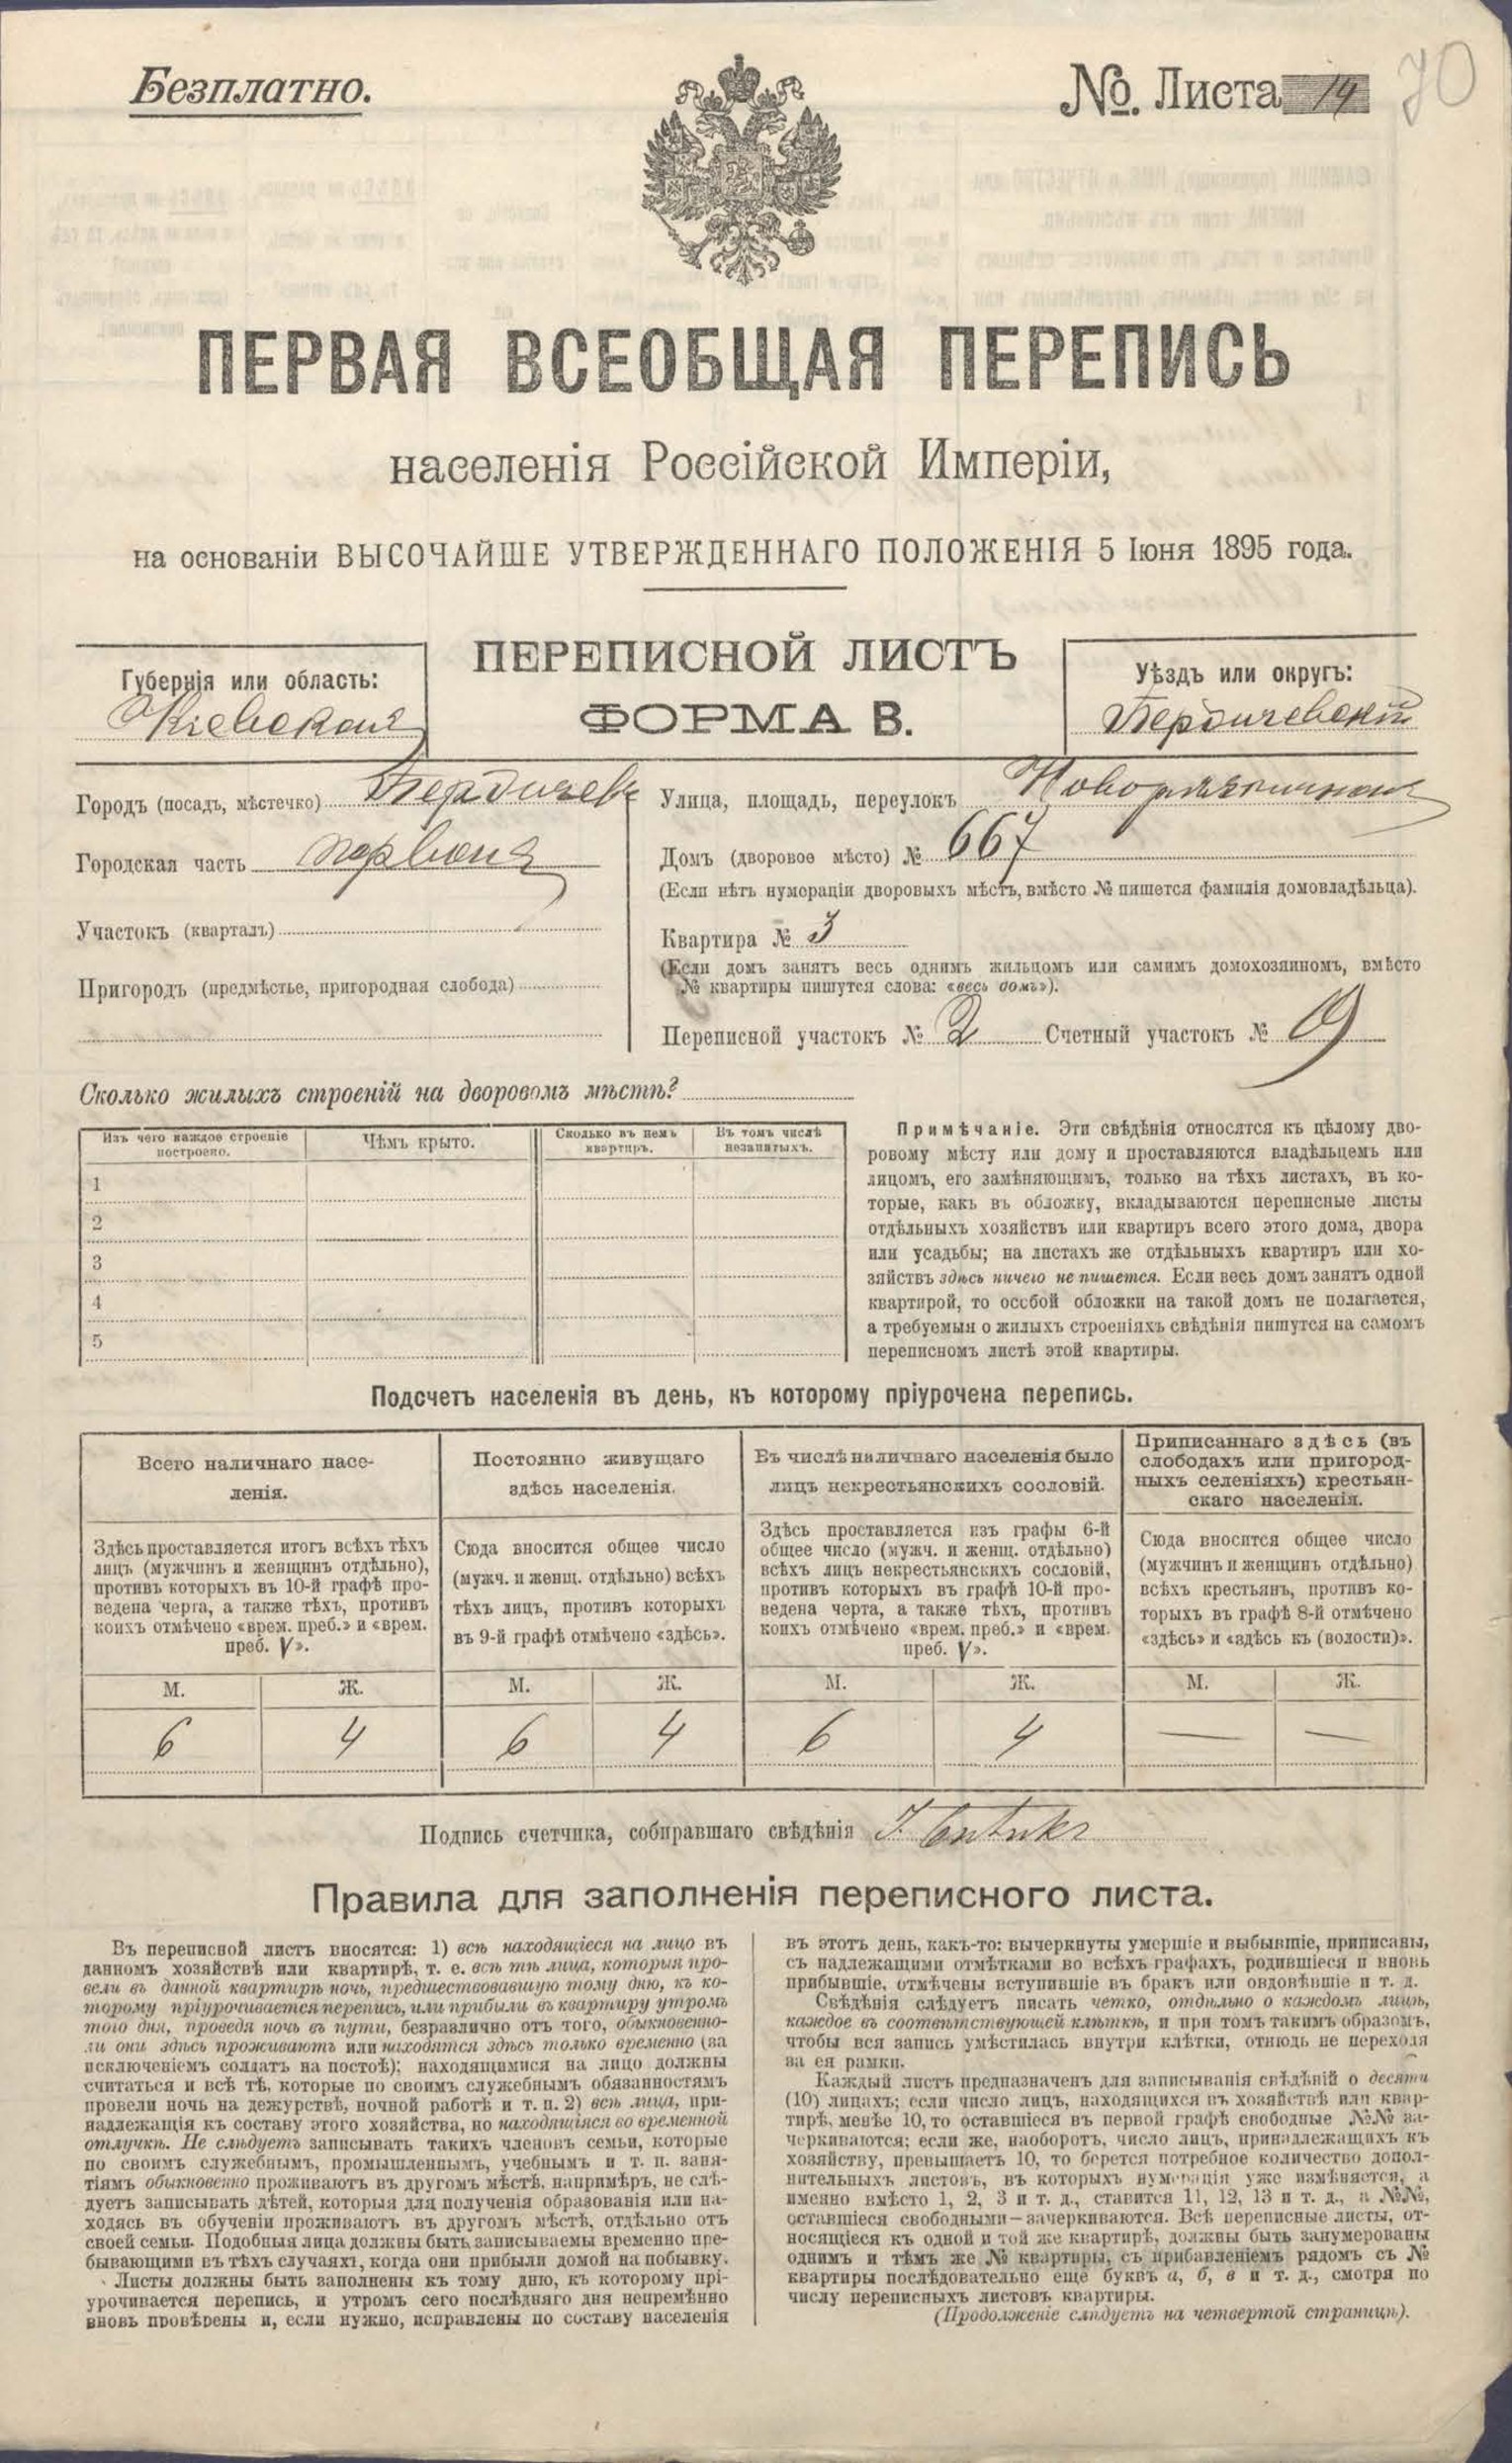 Безплатно.
№. Листа 14
70
ПЕРВАЯ ВСЕОБЩАЯ ПЕРЕПИСЬ
населенія Россійской Имперіи,
на основаніи ВЫСОЧАЙШЕ УТВЕРЖДЕННАГО ПОЛОЖЕНІЯ 5 Іюня 1895 года.
ПЕРЕПИСНОЙ ЛИСТЪ
ФОРМА В.
Губернія или область:
Кіевская
Уѣздъ или округъ:
Бердичевскій
Городъ (посадъ, мѣстечко) Бердичевъ
Городская часть первая
Участокъ (кварталъ)
Пригородъ (предмѣстье, пригородная слобода)
Улица, площадь, переулокъ
Домъ (дворовое мѣсто) № 667
(Если нѣтъ нумераціи дворовыхъ мѣстъ, вмѣсто № пишется фамилія домовладѣльца).
Квартира № 3
(Если домъ занятъ весь однимъ жильцомъ или самимъ домохозяиномъ, вмѣсто
№ квартиры пишутся слова: «весь домъ»).
Переписной участокъ № 2 Счетный участокъ №
Сколько жилыхъ строеній на дворовомъ мѣстѣ?
Изъ чего каждое строеніе
построено.
Чѣмъ крыто.
Сколько въ немъ
квартиръ.
Въ томъ числѣ
незанятыхъ.
1
2
3
4
5
Примѣчаніе. Эти свѣдѣнія относятся къ цѣлому дво-
ровому мѣсту или дому и проставляются владѣльцемъ или
лицомъ, его замѣняющимъ, только на тѣхъ листахъ, въ ко-
торые, какъ въ обложку, вкладываются переписные листы
отдѣльныхъ хозяйствъ или квартиръ всего этого дома, двора
или усадьбы; на листахъ же отдѣльныхъ квартиръ или хо-
зяйствъ здѣсь ничего не пишется. Если весь домъ занятъ одной
квартирой, то особой обложки на такой домъ не полагается,
а требуемыя о жилыхъ строеніяхъ свѣдѣнія пишутся на самомъ
переписномъ листѣ этой квартиры.
Подсчетъ населенія въ день, къ которому пріурочена перепись.
Всего наличнаго насе-
ленія.
Здѣсь проставляется итогъ всѣхъ тѣхъ
лицъ (мужчинъ и женщинъ отдѣльно),
противъ которыхъ въ 10-й графѣ про-
ведена черта, а также тѣхъ, противъ
коихъ отмѣчено «врем. преб.» и «врем.
преб. V».
М. Ж.
6 4
Постоянно живущаго
здѣсь населенія.
Сюда вносится общее число
(мужч. и женщ. отдѣльно) всѣхъ
тѣхъ лицъ, противъ которыхъ
въ 9-й графѣ отмѣчено «здѣсь».
М. Ж.
6 4
Въ числѣ наличнаго населенія было
лицъ некрестьянскихъ сословій.
Здѣсь проставляется изъ графы 6-й
общее число (мужч. и женщ. отдѣльно)
всѣхъ лицъ некрестьянскихъ сословій,
противъ которыхъ въ графѣ 10-й про-
ведена черта, а также тѣхъ, противъ
коихъ отмѣчено «врем. преб.» и «врем.
преб. V».
М. Ж.
6 4
Приписаннаго здѣсь (въ
слободахъ или пригород-
ныхъ селеніяхъ) крестьян-
скаго населенія.
Сюда вносится общее число
(мужчинъ и женщинъ отдѣльно)
всѣхъ крестьянъ, противъ ко-
торыхъ въ графѣ 8-й отмѣчено
«здѣсь» и «здѣсь къ (волости)».
М. Ж.
— —
Подпись счетчика, собиравшаго свѣдѣнія
Правила для заполненія переписного листа.
Въ переписной листъ вносятся: 1) всѣ находящіеся на лицо въ
данномъ хозяйствѣ или квартирѣ, т. е. всѣ тѣ лица, которыя про-
вели въ данной квартирѣ ночь, предшествовавшую тому дню, къ ко-
торому пріурочивается перепись, или прибыли въ квартиру утромъ
того дня, проведя ночь въ пути, безразлично отъ того, обыкновенно-
ли они здѣсь проживаютъ или находятся здѣсь только временно (за
исключеніемъ солдатъ на постоѣ); находящимися на лицо должны
считаться и всѣ тѣ, которые по своимъ служебнымъ обязанностямъ
провели ночь на дежурствѣ, ночной работѣ и т. п. 2) всѣ лица, при-
надлежащія къ составу этого хозяйства, но находящіяся во временной
отлучкѣ. Не слѣдуетъ записывать такихъ членовъ семьи, которые
по своимъ служебнымъ, промышленнымъ, учебнымъ и т. п. заня-
тіямъ обыкновенно проживаютъ въ другомъ мѣстѣ, напримѣръ, не слѣ-
дуетъ записывать дѣтей, которыя для полученія образованія или на-
ходясь въ обученіи проживаютъ въ другомъ мѣстѣ, отдѣльно отъ
своей семьи. Подобныя лица должны быть записываемы временно пре-
бывающими въ тѣхъ случаяхъ, когда они прибыли домой на побывку.
Листы должны быть заполнены къ тому дню, къ которому прі-
урочивается перепись, и утромъ сего послѣдняго дня непремѣнно
вновь провѣрены и, если нужно, исправлены по составу населенія
въ этотъ день, какъ-то: вычеркнуты умершіе и выбывшіе, приписаны,
съ надлежащими отмѣтками во всѣхъ графахъ, родившіеся и вновь
прибывшіе, отмѣчены вступившіе въ бракъ или овдовѣвшіе и т. д.
Свѣдѣнія слѣдуетъ писать четко, отдѣльно о каждомъ лицѣ,
каждое въ соотвѣтствующей клѣткѣ, и при томъ такимъ образомъ,
чтобы вся запись умѣстилась внутри клѣтки, отнюдь не переходя
за ея рамки.
Каждый листъ предназначенъ для записыванія свѣдѣній о десяти
(10) лицахъ; если число лицъ, находящихся въ хозяйствѣ или квар-
тирѣ, менѣе 10, то оставшіеся въ первой графѣ свободные №№ за-
черкиваются; если же, наоборотъ, число лицъ, принадлежащихъ къ
хозяйству, превышаетъ 10, то берется потребное количество допол-
нительныхъ листовъ, въ которыхъ нумерація уже измѣняется, а
именно вмѣсто 1, 2, 3 и т. д., ставится 11, 12, 13 и т. д., а №№,
оставшіеся свободными—зачеркиваются. Всѣ переписные листы, от-
носящіеся къ одной и той же квартирѣ, должны быть занумерованы
однимъ и тѣмъ же № квартиры, съ прибавленіемъ рядомъ съ №
квартиры послѣдовательно еще буквъ а, б, в и т. д., смотря по
числу переписныхъ листовъ квартиры.
(Продолженіе слѣдуетъ на четвертой страницѣ).